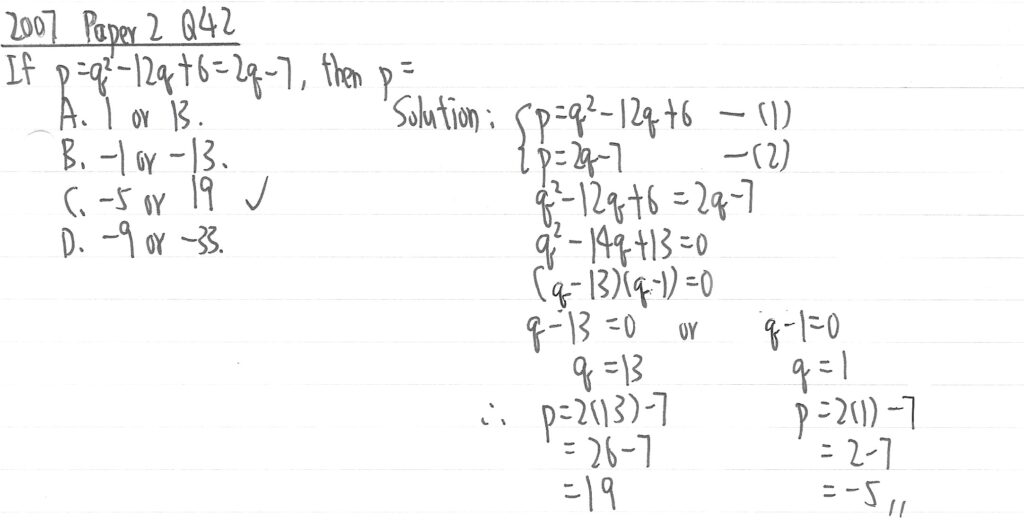 2007 Paper 2 Q42
If p=q²-12q+6=2q-7, then p=
A. 1 or 13.
B. -1 or -13.
C. -5 or 19 ✓
D. -9 or -33.
Solution: { p=q²-12q+6 —(1)
p=2q-7 —(2)
q²-12q+6=2q-7
q²-14q+13=0
(q-13)(q-1)=0
q-13=0 or q-1=0
q=13 q=1
∴ p=2(13)-7 p=2(1)-7
=26-7 =2-7
=19 =-5 //